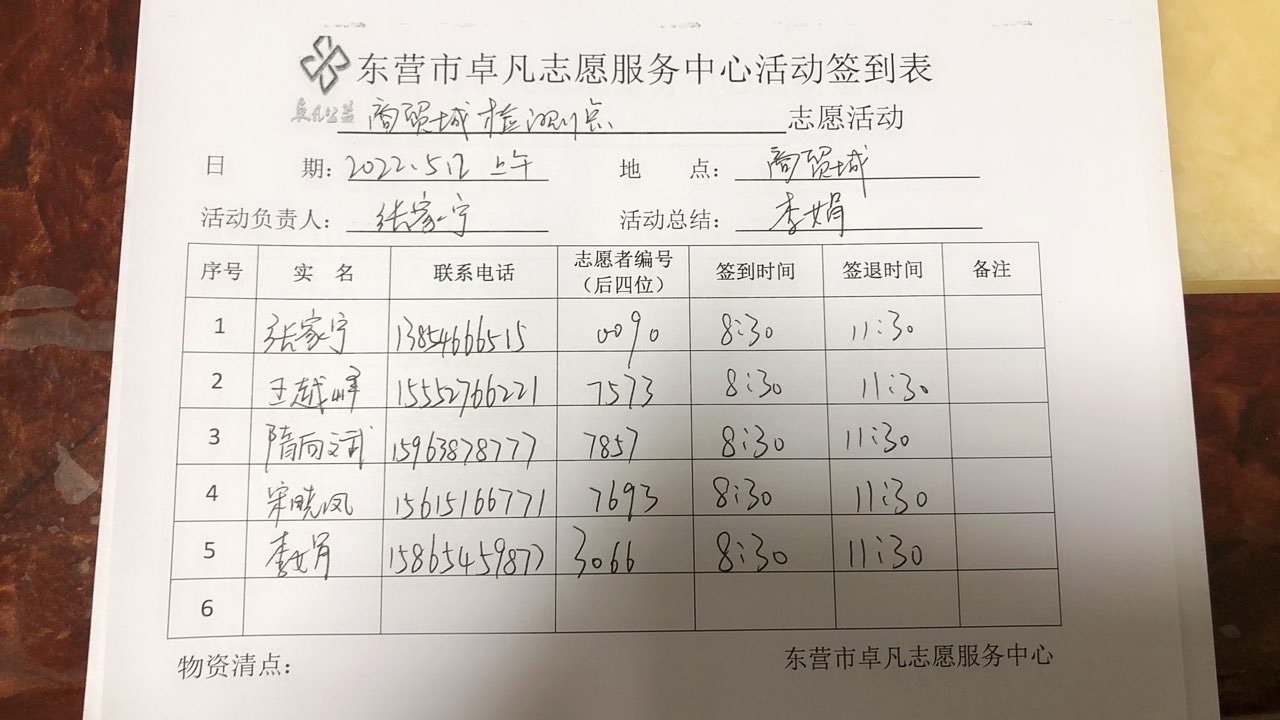 东营市卓凡志愿服务中心活动签到表
卓凡公益
商贸城检测点 志愿活动
日 期: 2022.5.12 上午 地 点: 商贸城
活动负责人: 张家宁 活动总结: 李娟
序号 实 名 联系电话 志愿者编号（后四位） 签到时间 签退时间 备注
1 张家宁 13854666515 0090 8:30 11:30
2 王越峰 15552766221 7573 8:30 11:30
3 隋向文武 15963878777 7857 8:30 11:30
4 宋晓凤 15615166771 7693 8:30 11:30
5 李娟 15865459877 3066 8:30 11:30
6
物资清点: 东营市卓凡志愿服务中心